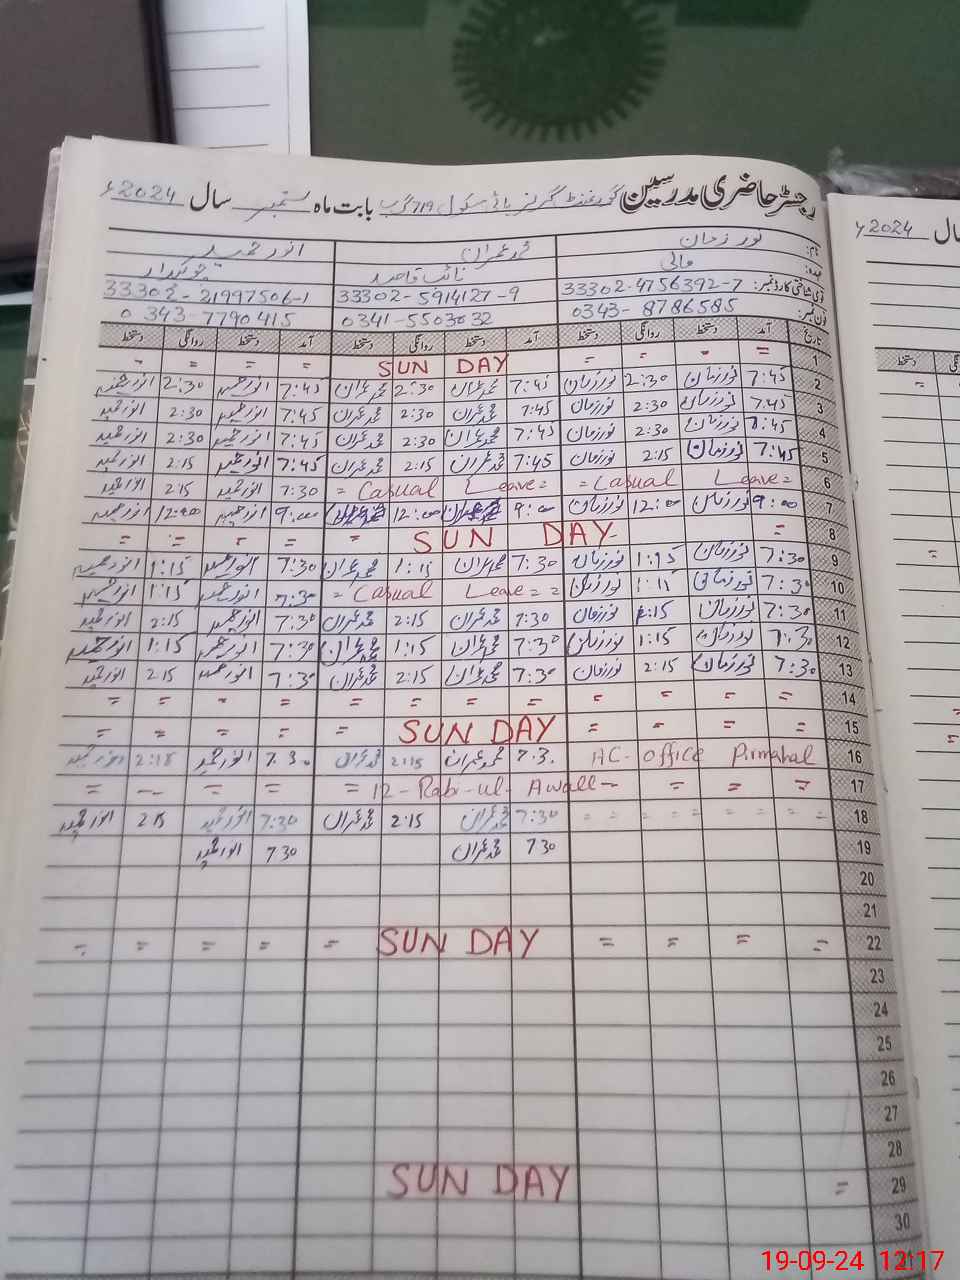 رجسٹر حاضری مدرسین گورنمنٹ گرلز ہائی سکول 719 گ ب بابت ماہ ستمبر سال 2024ء
نام: نور زمان محمد عمران انور حمید
عہدہ: مالی نائب قاصد چوکیدار
قومی شناختی کارڈ نمبر: 33302-4756392-7 33302-5914127-9 33302-21997506-1
فون نمبر: 0343-8786585 0341-5503032 0343-7790415
تاریخ آمد دستخط روانگی دستخط آمد دستخط روانگی دستخط آمد دستخط روانگی دستخط
1 = = = = SUN DAY = = = =
2 7:45 نور زمان 2:30 نور زمان 7:45 محمد عمران 2:30 محمد عمران 7:45 انور حمید 2:30 انور حمید
3 7:45 نور زمان 2:30 نور زمان 7:45 محمد عمران 2:30 محمد عمران 7:45 انور حمید 2:30 انور حمید
4 7:45 نور زمان 2:30 نور زمان 7:45 محمد عمران 2:30 محمد عمران 7:45 انور حمید 2:30 انور حمید
5 7:45 نور زمان 2:15 نور زمان 7:45 محمد عمران 2:15 محمد عمران 7:45 انور حمید 2:15 انور حمید
6 = Casual Leave = = Casual Leave = 7:30 انور حمید 2:15 انور حمید
7 9:00 نور زمان 12:00 نور زمان 9:00 محمد عمران 12:00 محمد عمران 9:00 انور حمید 12:00 انور حمید
8 = SUN DAY = = = = =
9 7:30 نور زمان 1:15 نور زمان 7:30 محمد عمران 1:15 محمد عمران 7:30 انور حمید 1:15 انور حمید
10 7:30 نور زمان 1:15 نور زمان = Casual Leave = = 7:30 انور حمید 1:15 انور حمید
11 7:30 نور زمان 2:15 نور زمان 7:30 محمد عمران 2:15 محمد عمران 7:30 انور حمید 2:15 انور حمید
12 7:30 نور زمان 1:15 نور زمان 7:30 محمد عمران 1:15 محمد عمران 7:30 انور حمید 1:15 انور حمید
13 7:30 نور زمان 2:15 نور زمان 7:30 محمد عمران 2:15 محمد عمران 7:30 انور حمید 2:15 انور حمید
14 = = = = = = = = = = = =
15 = = = = SUN DAY = = = = =
16 AC-office Pirmahal 7.30 محمد عمران 2:15 محمد عمران 7.30 انور حمید 2:15 انور حمید
17 = = = = 12-Rabi-ul-Awall = = = = =
18 = = = = = = = 7:30 محمد عمران 2:15 محمد عمران 7:30 انور حمید 2:15 انور حمید
19 730 محمد عمران 730 انور حمید
20
21
22 = = = = SUN DAY = = = = =
23
24
25
26
27
28
29 = SUN DAY
30
31
2024ء
سال
دستخط
19-09-24 12:17